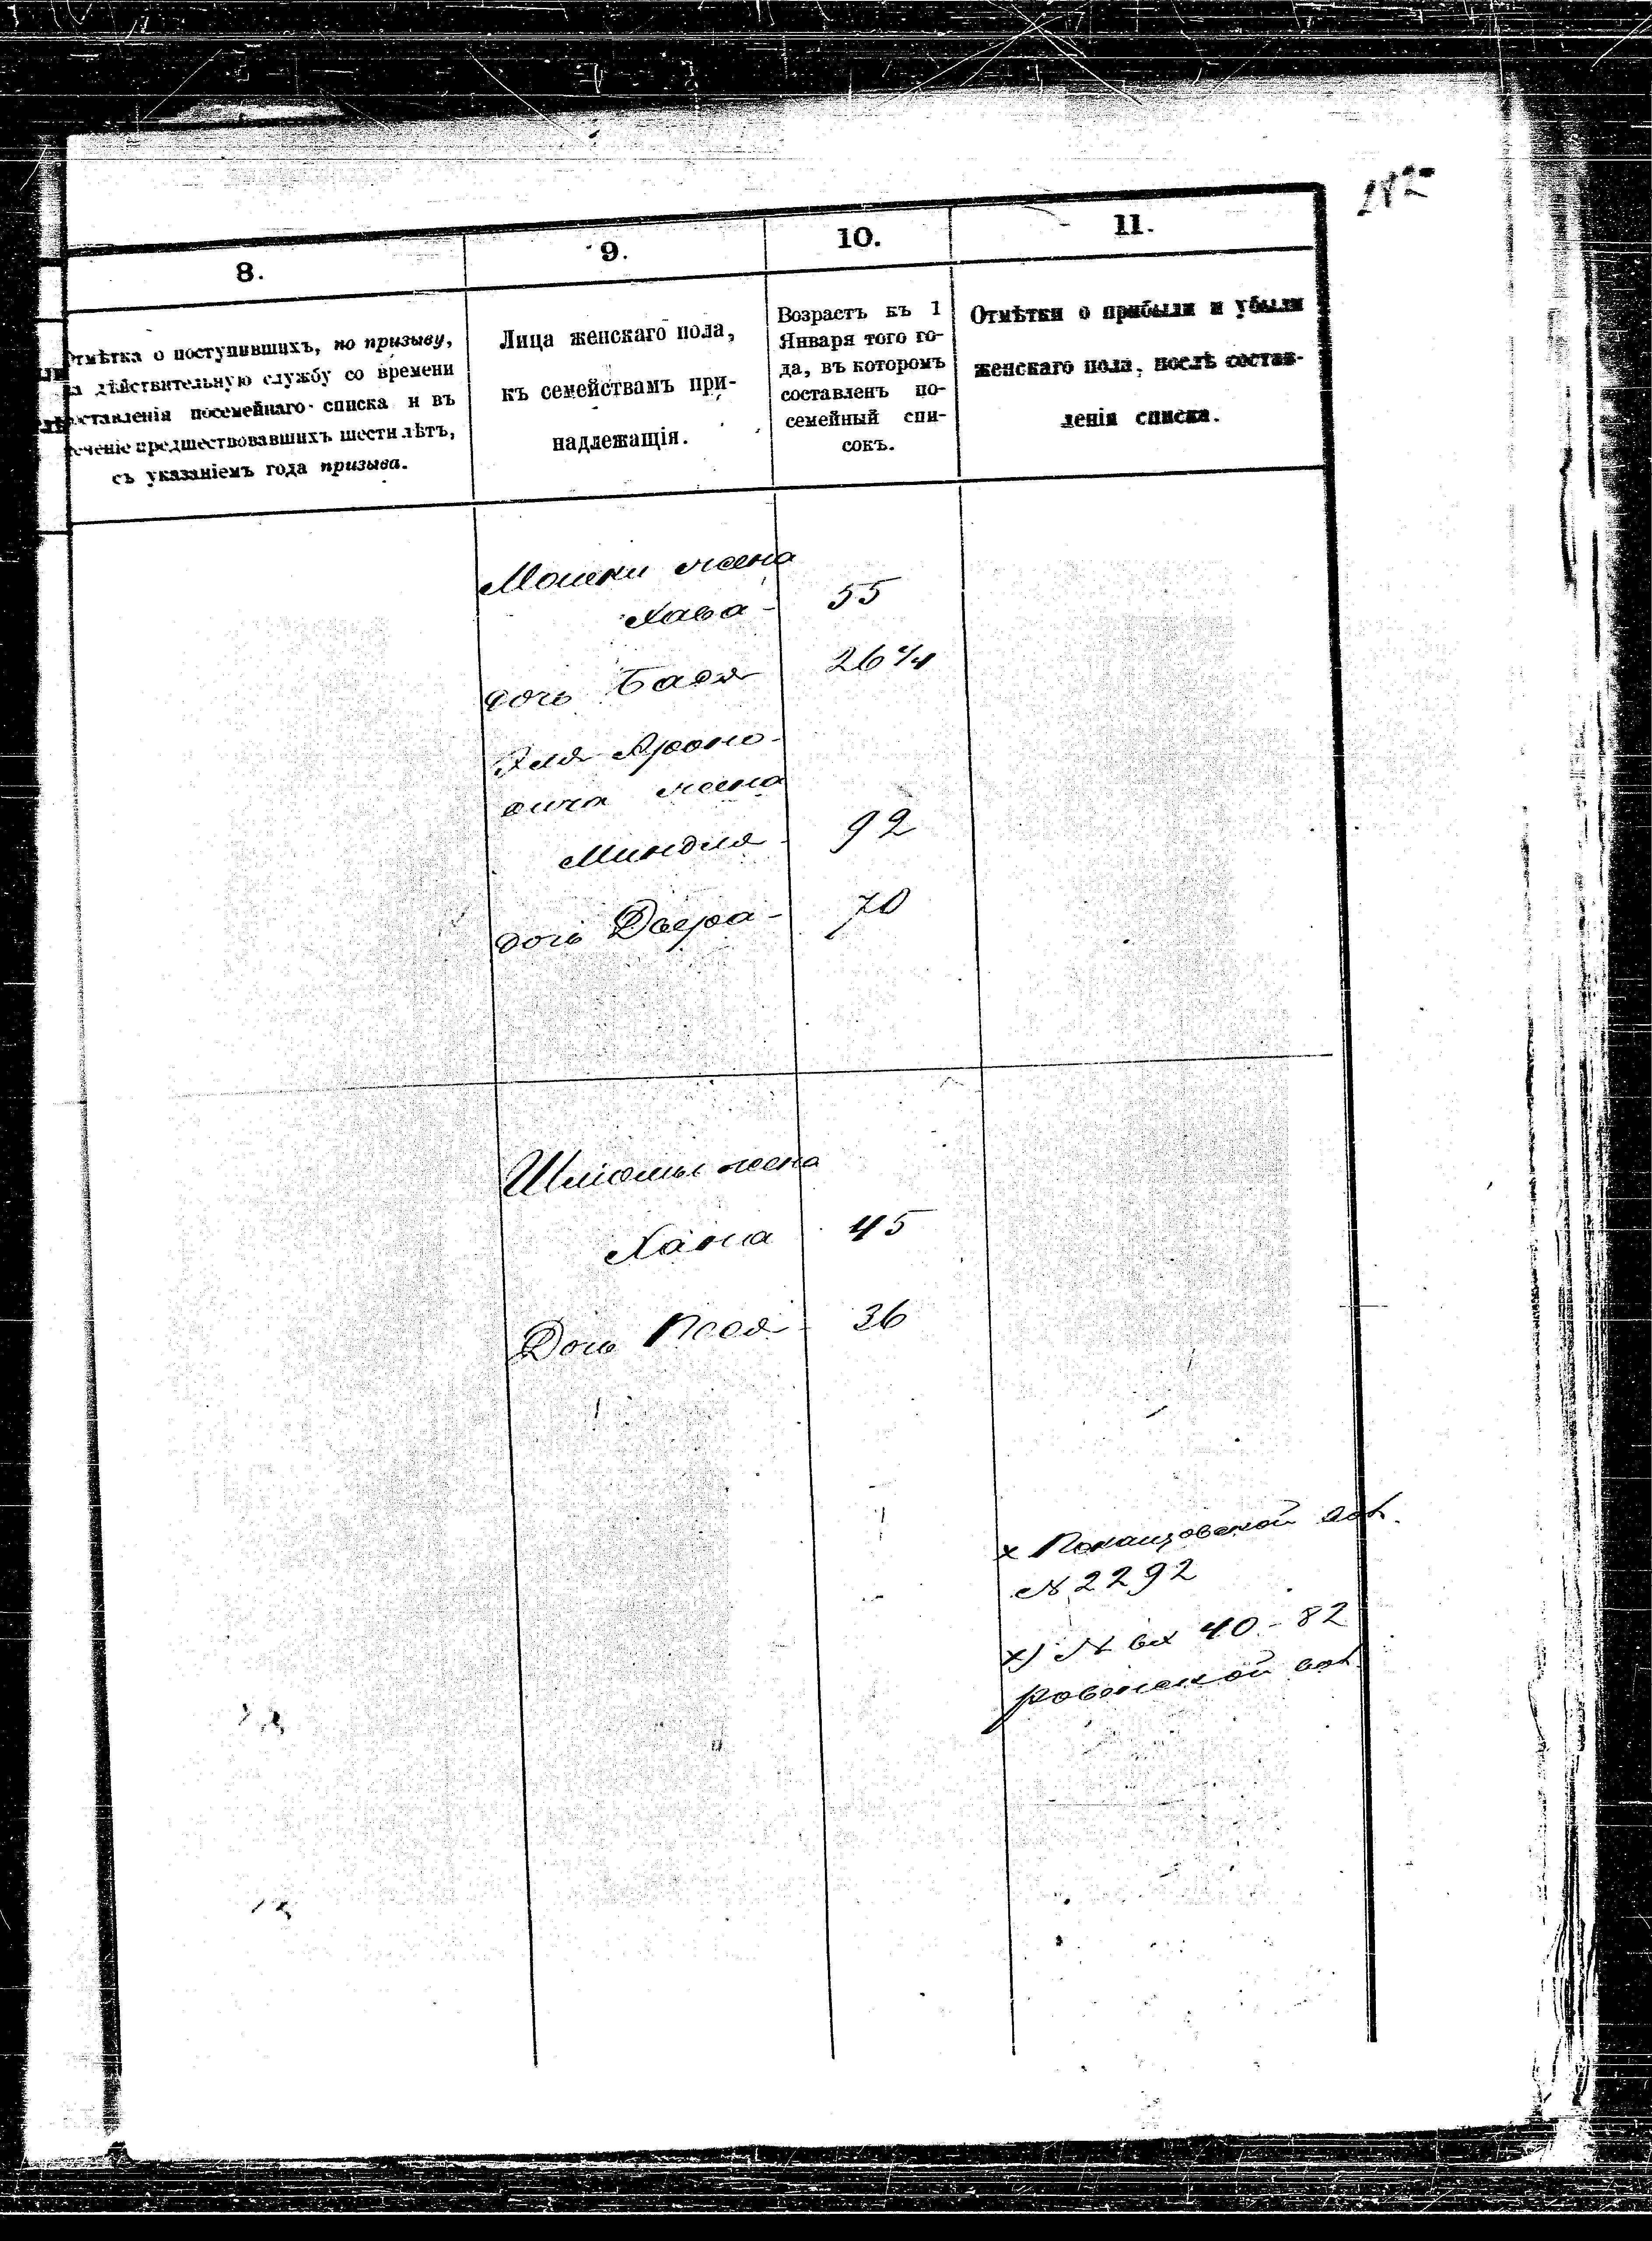 8.
9.
10.
11.
Отмѣтка о поступившихъ, по призыву,
дѣйствительную службу со времени
составленія посемейнаго списка и въ
теченіе предшествовавшихъ шести лѣтъ,
съ указаніемъ года призыва.
Лица женскаго пола,
къ семействамъ при-
надлежащія.
Возрастъ къ 1
Января того го-
да, въ которомъ
составленъ по-
семейный спи-
сокъ.
Отмѣтки о прибыли и убыли
женскаго пола, послѣ состав-
ленія списка.
Мошки жена
Хава - 55
дочь Бася 26 1/4
Эля Ароно-
вича жена
Миндля - 92
дочь Двера - 70
Шліомы жена
Хана 45
Дочь Песя 36
х
№ 2292
х) № вх 40 - 82
Ровенской вол.